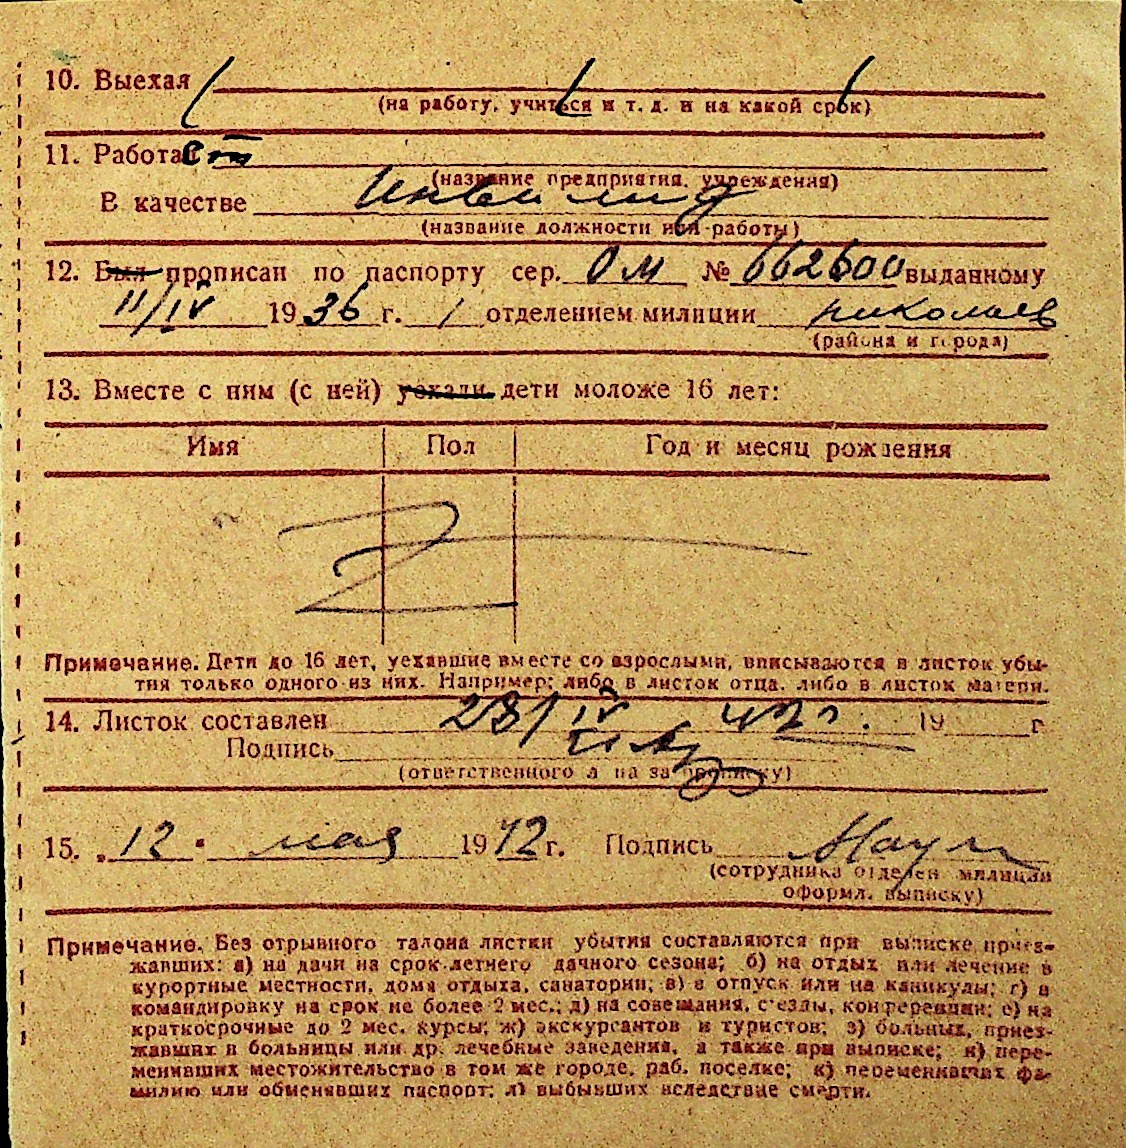 10. Выехал
(на работу, учиться и т. д. и на какой срок)
11. Работает
(название предприятия, учреждения)
В качестве инвалид
(название должности или работы)
12. Был прописан по паспорту сер. ОМ № 662600 выданному
11/IV 1936 г. 1 отделением милиции николаев
(района и города)
13. Вместе с ним (с ней) уехали дети моложе 16 лет:
Имя Пол Год и месяц рождения
Примечание. Дети до 16 лет, уехавшие вместе со взрослыми, вписываются в листок убы-
тия только одного из них. Например: либо в листок отца, либо в листок матери.
14. Листок составлен 23/IV 42 г. 19 г
Подпись
(ответственного л на за прописку)
15. „12" мая 1942 г. Подпись
(сотрудника отделен милиции
оформл. выписку)
Примечание. Без отрывного талона листки убытия составляются при выписке приез-
жавших: а) на дачи на срок летнего дачного сезона; б) на отдых или лечение в
курортные местности, дома отдыха, санатории; в) в отпуск или на каникулы; г) в
командировку на срок не более 2 мес.; д) на совещания, съезды, конференции; е) на
краткосрочные до 2 мес. курсы; ж) экскурсантов и туристов; з) больных, приез-
жавших в больницы или др. лечебные заведения, а также при выписке; и) пере-
менивших местожительство в том же городе, раб. поселке; к) переменивших фа-
милию или обменявших паспорт; л) выбывших вследствие смерти.